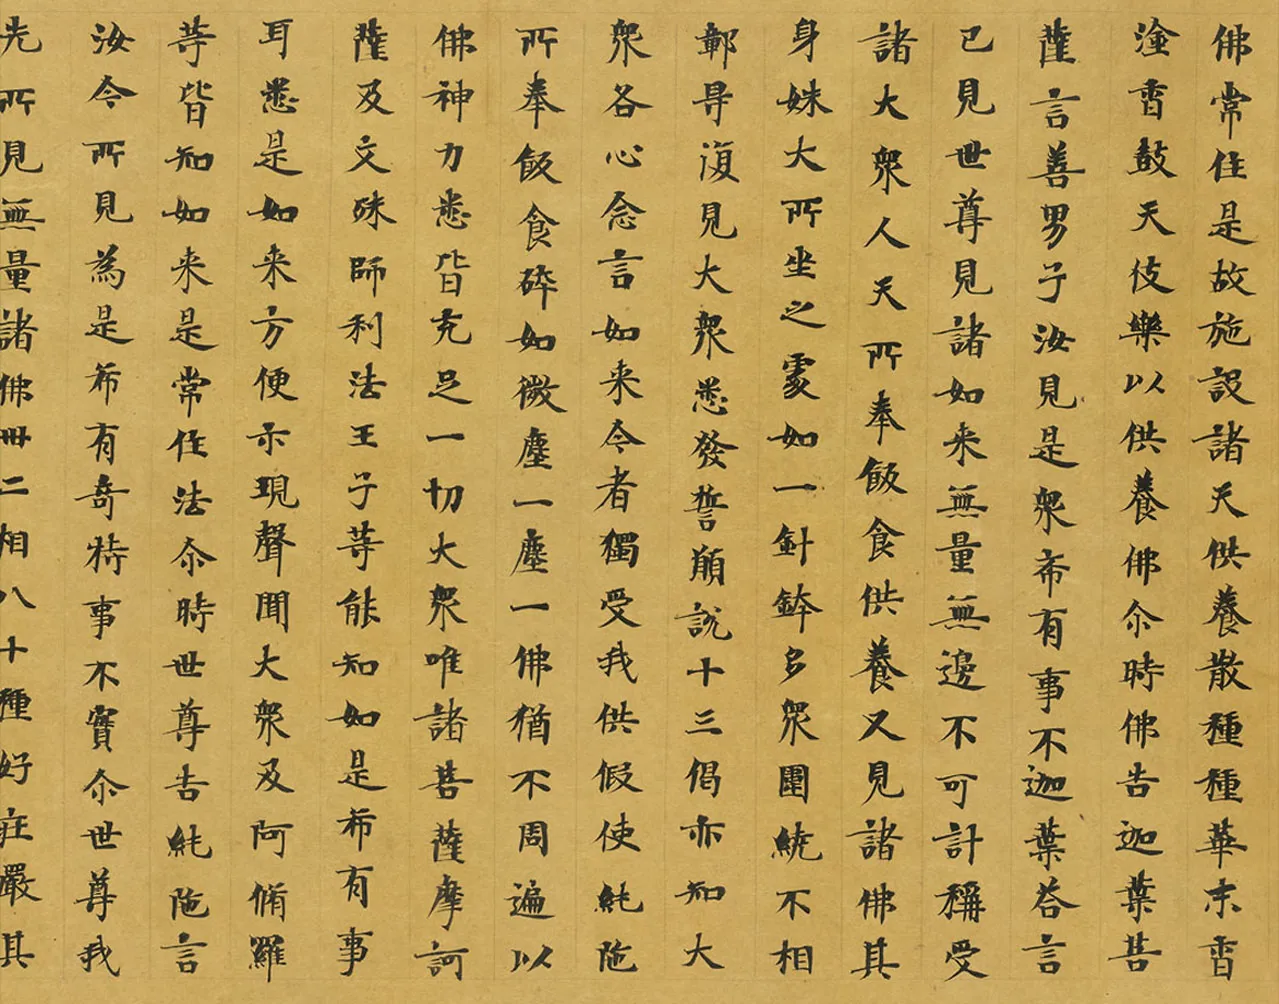 佛常住是故施設諸天供養散種種華末香
塗香鼓天伎樂以供養佛尒時佛告迦葉菩
薩言善男子汝見是衆希有事不迦葉荅言
已見世尊見諸如来無量無邊不可計稱受
諸大衆人天所奉飯食供養又見諸佛其
身姝大所坐之處如一針鋒多衆圍繞不相
鄣㝵復見大衆悉發誓願說十三偈亦知大
衆各心念言如来今者獨受我供假使純陁
所奉飯食碎如微塵一塵一佛猶不周遍以
佛神力悉皆充足一切大衆唯諸菩薩摩訶
薩及文殊師利法王子等能知如是希有事
耳悉是如来方便示現聲聞大衆及阿脩羅
等皆知如来是常住法尒時世尊告純陁言
汝今所見為是希有奇特事不實尒世尊我
先所見無量諸佛卌二相八十種好莊嚴其